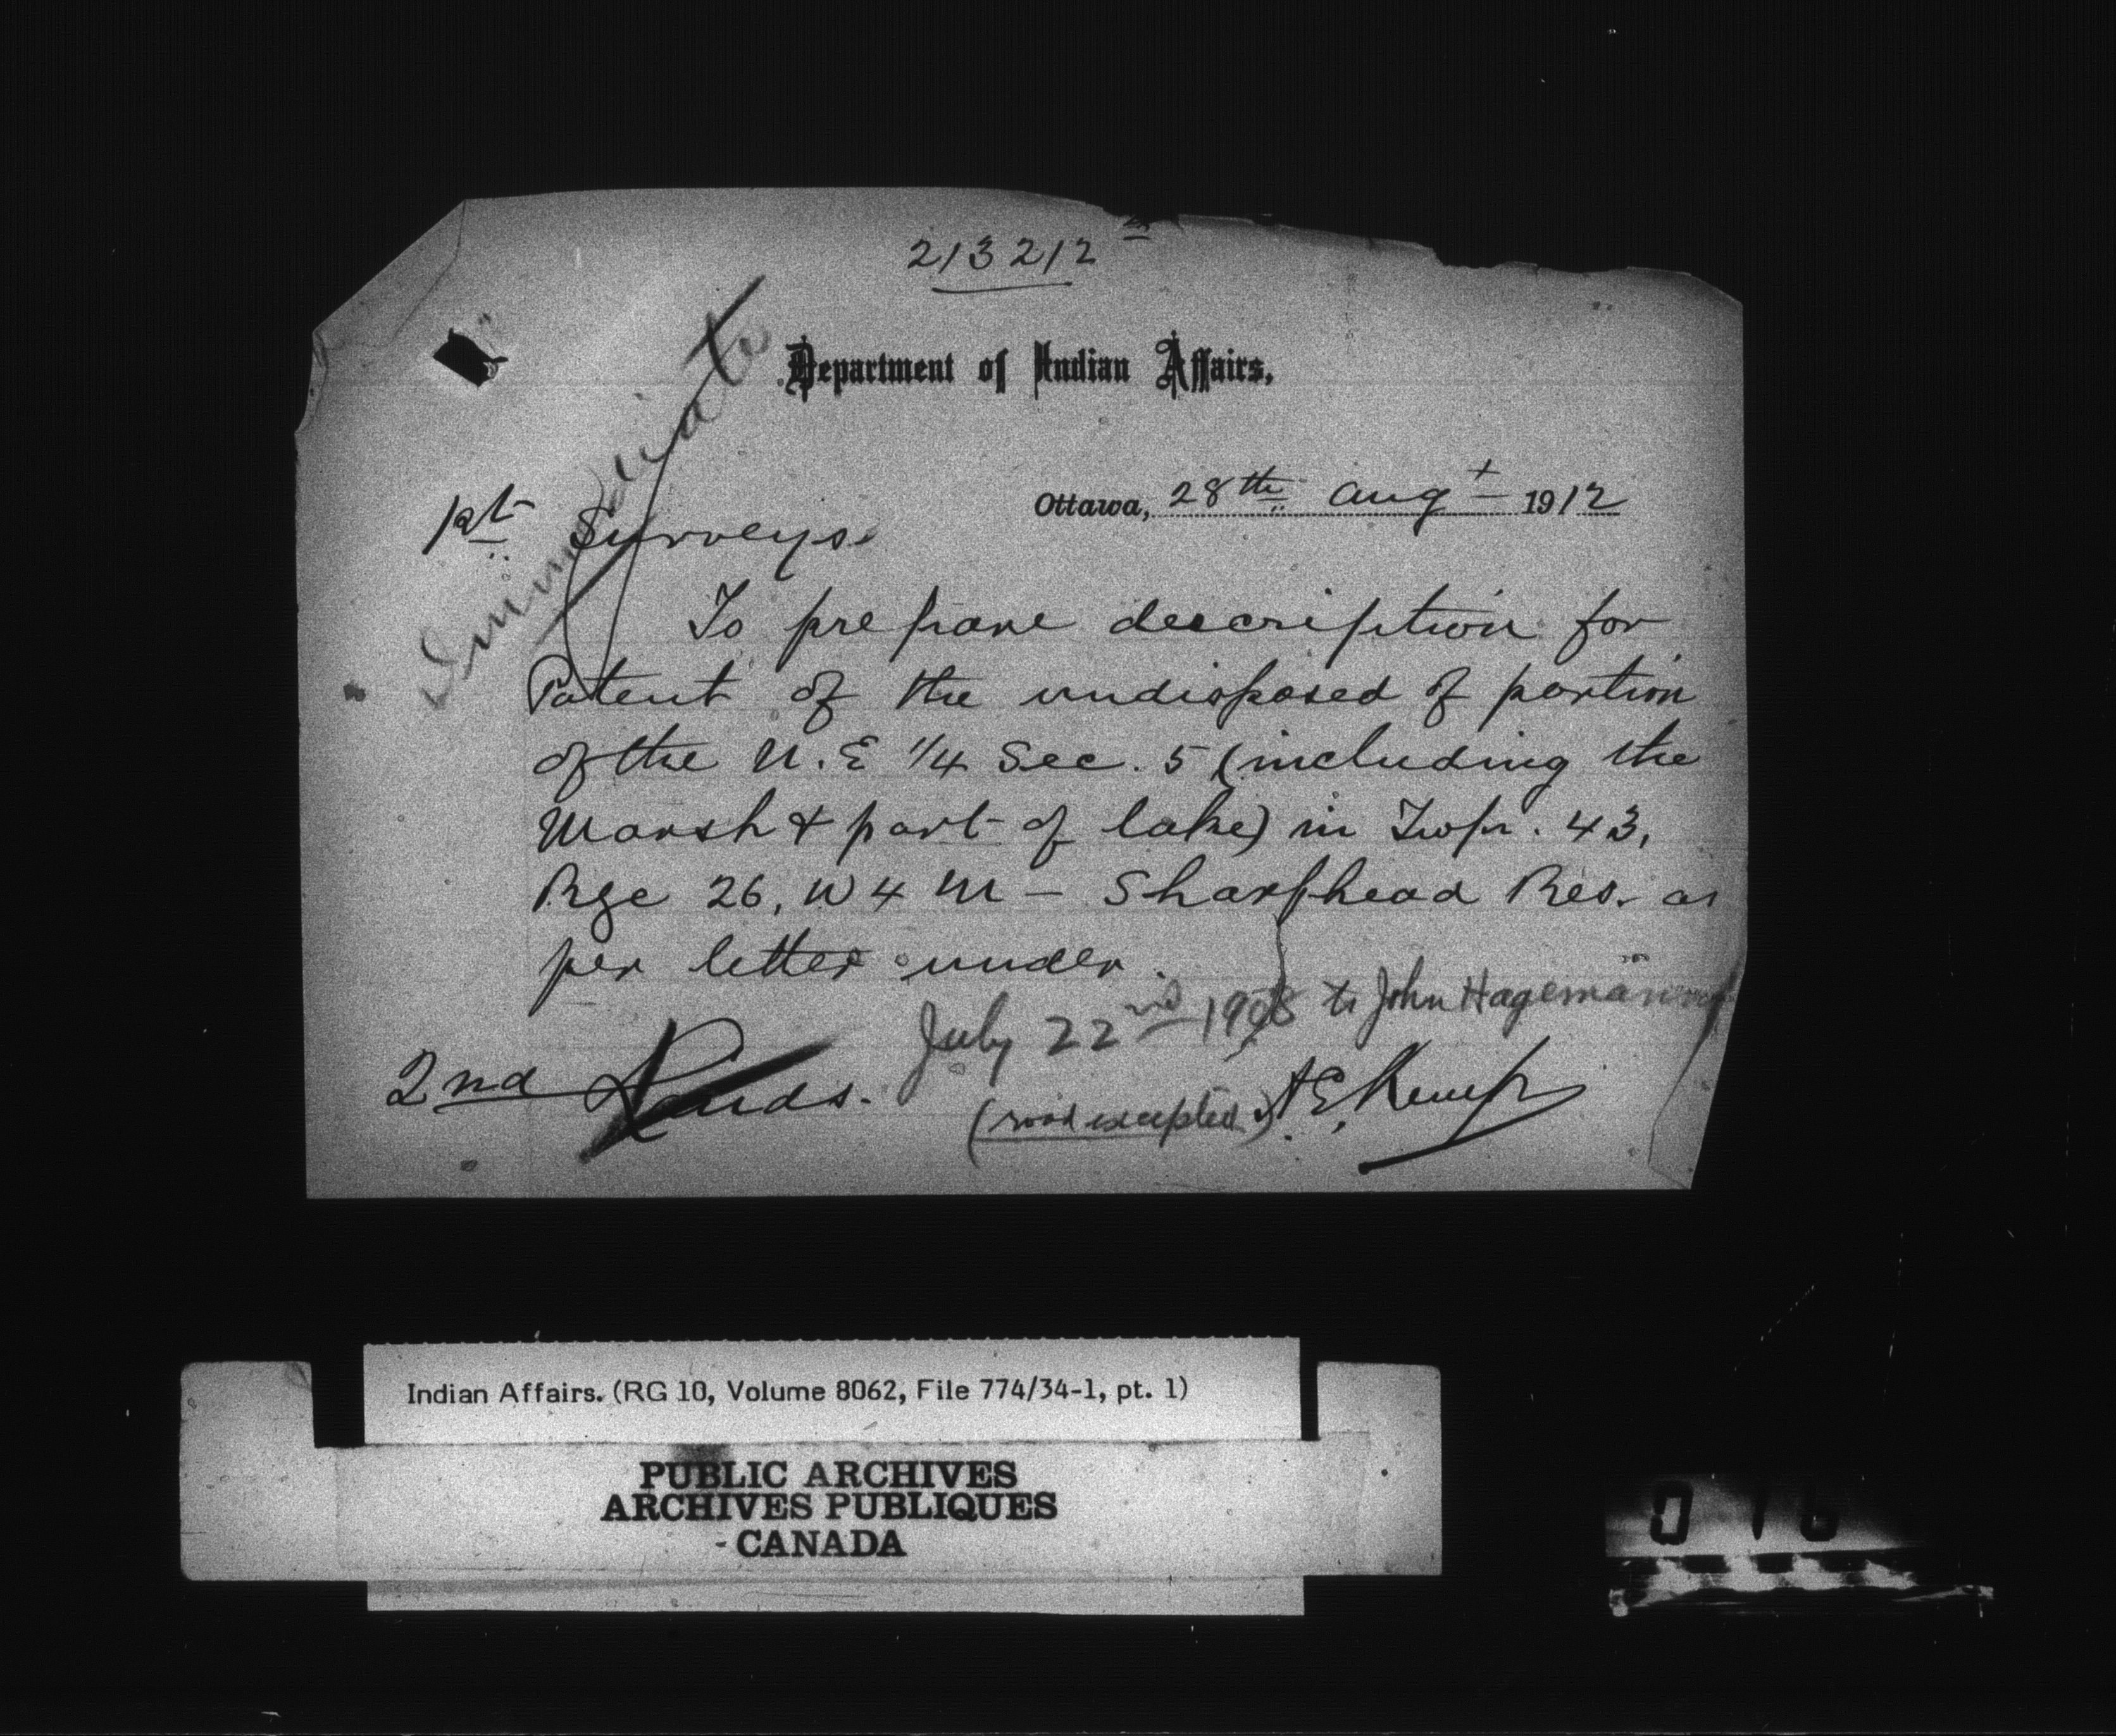 213212
Department of Indian Affairs,
Immediate
Ottawa, 28th Augt 1912
1st Surveys.
To prepare description for
Patent of the undisposed of portion
of the N.E 1/4 Sec. 5 (including the
Marsh & part of lake) in Twp. 43,
Rge 26, W 4 M – Sharphead Res. as
per letter under.
July 22nd 1908 to John Hageman
2nd Lands.
(road excepted) A.E. Kemp
Indian Affairs. (RG 10, Volume 8062, File 774/34-1, pt. 1)
PUBLIC ARCHIVES
ARCHIVES PUBLIQUES
CANADA
016